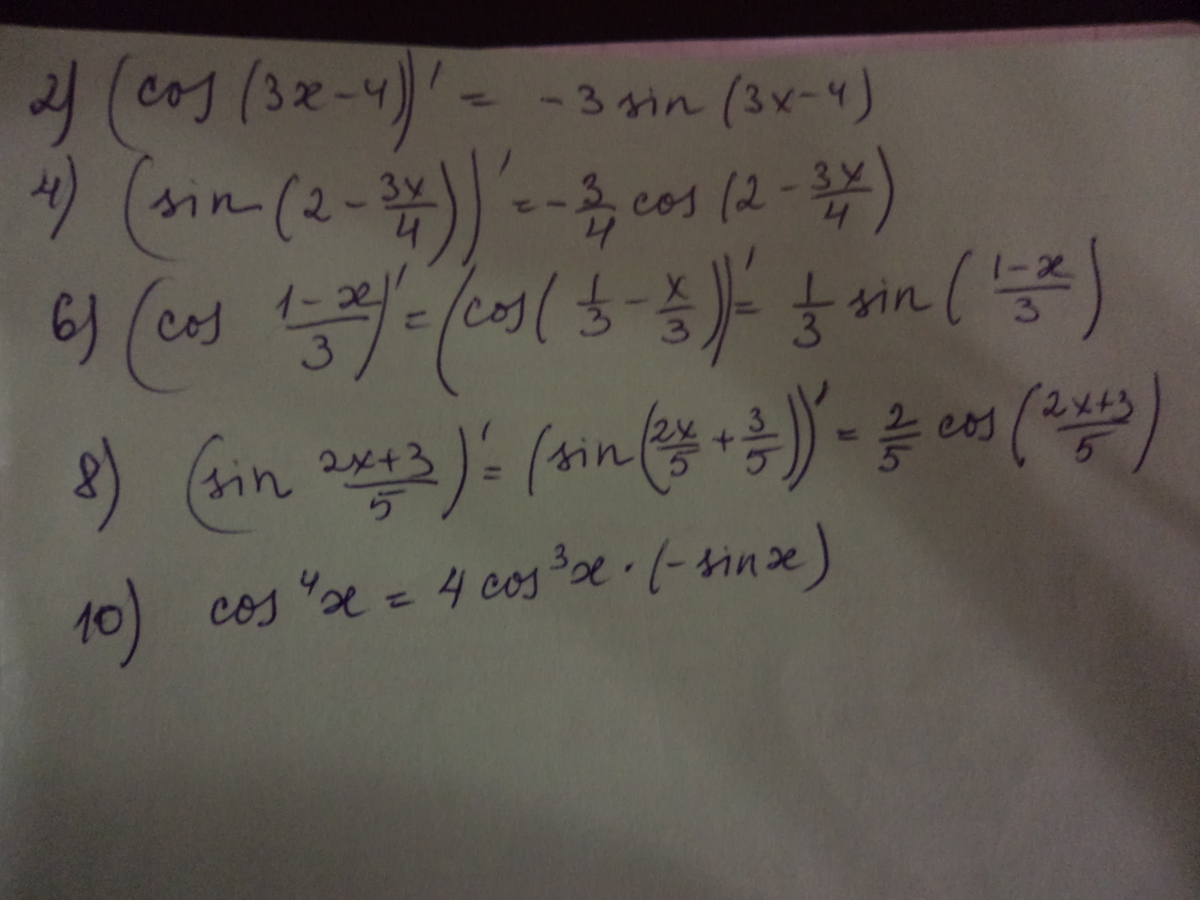 2) (cos (3x-4))' = -3 sin (3x-4)
4) (sin (2 - 3x/4))' = -3/4 cos (2 - 3x/4)
6) (cos 1-x/3)' = (cos (1/3 - x/3))' = 1/3 sin (1-x/3)
8) (sin 2x+3/5)' = (sin (2x/5 + 3/5))' = 2/5 cos (2x+3/5)
10) cos⁴x = 4 cos³x · (-sin x)